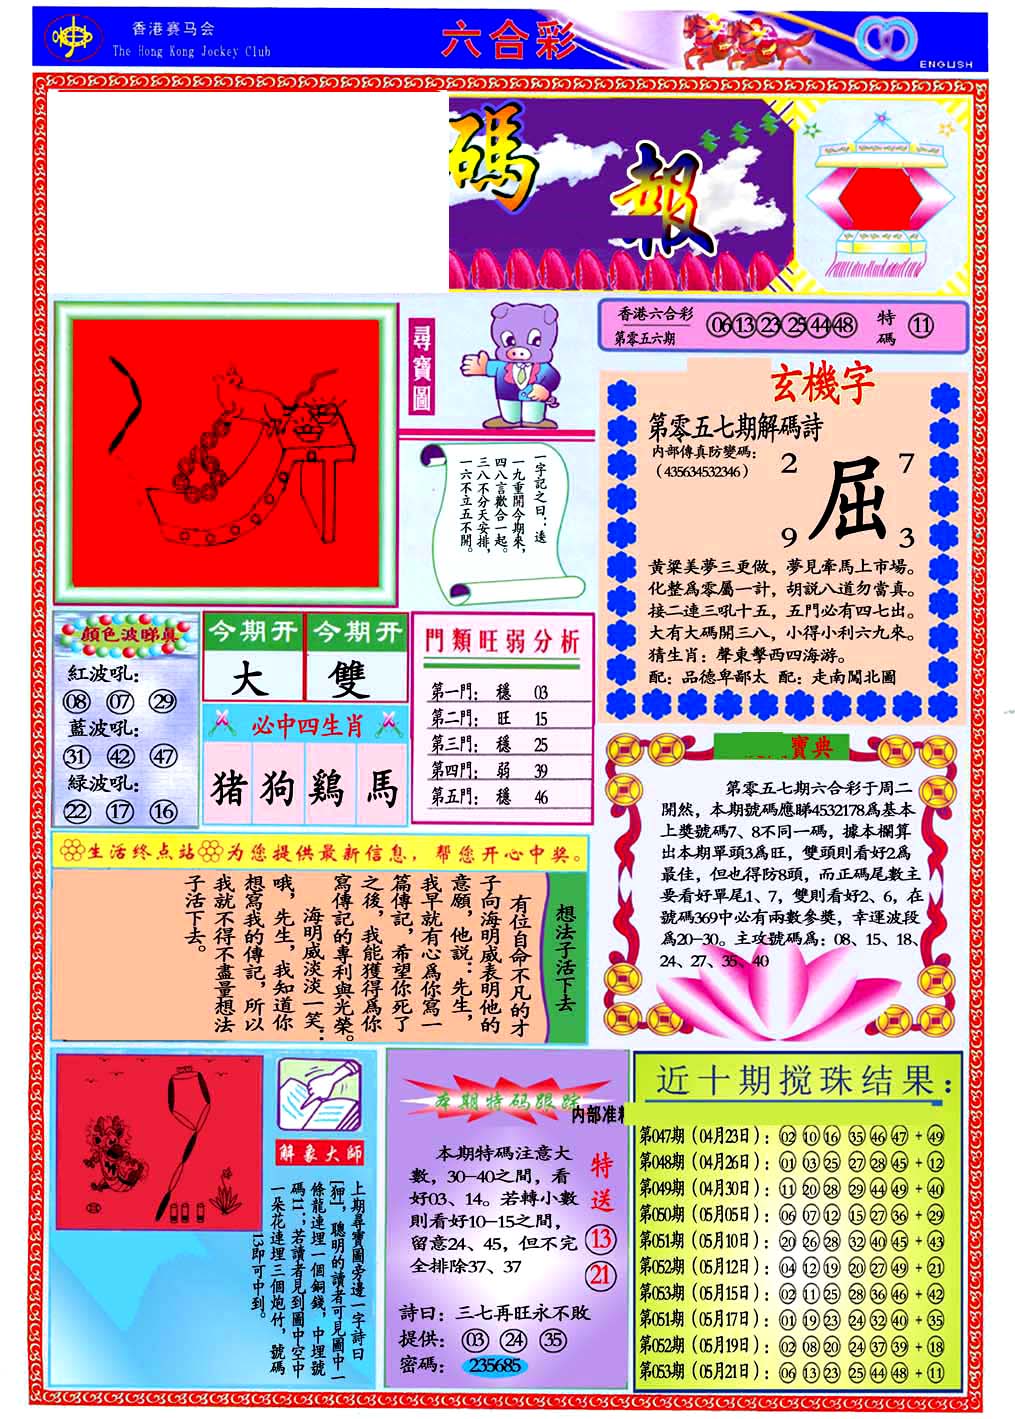 香港赛马会
The Hong Kong Jockey Club
六合彩
ENGLISH
碼報
尋寶圖
一字記之曰：遠
一九重開今期來，
四八言歡合一起。
三八不分天安排，
一六不立五不開。
香港六合彩
第零五六期
06 13 23 25 44 48
特碼
11
玄機字
第零五七期解碼詩
内部傳真防變碼：
（435634532346）
2 7
屈
9 3
黄梁美夢三更做，夢見牽馬上市場。
化整爲零屬一計，胡説八道勿當真。
接二連三吼十五，五門必有四七出。
大有大碼開三八，小得小利六九來。
猜生肖：聲東擊西四海游。
配：品德卑鄙太 配：走南闖北圖
顔色波睇真
紅波吼：
08 07 29
藍波吼：
31 42 47
緑波吼：
22 17 16
今期开 今期开
大 雙
必中四生肖
猪 狗 鷄 馬
門類旺弱分析
第一門： 穩 03
第二門： 旺 15
第三門： 穩 25
第四門： 弱 39
第五門： 穩 46
寶典
第零五七期六合彩于周二
開然，本期號碼應睇4532178爲基本
上獎號碼7、8不同一碼，據本欄算
出本期單頭3爲旺，雙頭則看好2爲
最佳，但也得防8頭，而正碼尾數主
要看好單尾1、7，雙則看好2、6，在
號碼369中必有兩數參獎，幸運波段
爲20-30。主攻號碼爲：08、15、18、
24、27、35、40
生活终点站 为您提供最新信息，帮您开心中奖。
想法子活下去
有位自命不凡的才
子向海明威表明他的
意願，他説：先生，
我早就有心爲你寫一
篇傳記，希望你死了
之後，我能獲得爲你
寫傳記的專利與光榮。
海明威淡淡一笑：
哦，先生，我知道你
想寫我的傳記，所以
我就不得不盡量想法
子活下去。
解象大師
上期尋寶圖旁邊一字詩曰
[狎]，聰明的讀者可見圖中一
條龍連埋一個銅錢，中埋號
碼11；若讀者見到圖中空中
一朵花連埋三個炮竹，號碼
13即可中到。
本期特码跟踪
内部准料
本期特碼注意大
數，30-40之間，看
好03、14。若轉小數
則看好10-15之間，
留意24、45，但不完
全排除37、37
特送
13
21
詩曰：三七再旺永不敗
提供： 03 24 35
密碼： 235685
近十期搅珠结果：
第047期（04月23日）：02 10 16 35 46 47 + 49
第048期（04月26日）：01 03 25 27 28 45 + 12
第049期（04月30日）：11 20 28 29 44 49 + 40
第050期（05月05日）：06 07 12 15 27 36 + 29
第051期（05月10日）：20 26 28 32 40 45 + 43
第052期（05月12日）：04 12 19 20 27 49 + 21
第053期（05月15日）：02 11 25 28 36 46 + 42
第051期（05月17日）：01 19 23 24 32 40 + 35
第052期（05月19日）：02 08 20 24 37 39 + 18
第053期（05月21日）：06 13 23 25 44 48 + 11